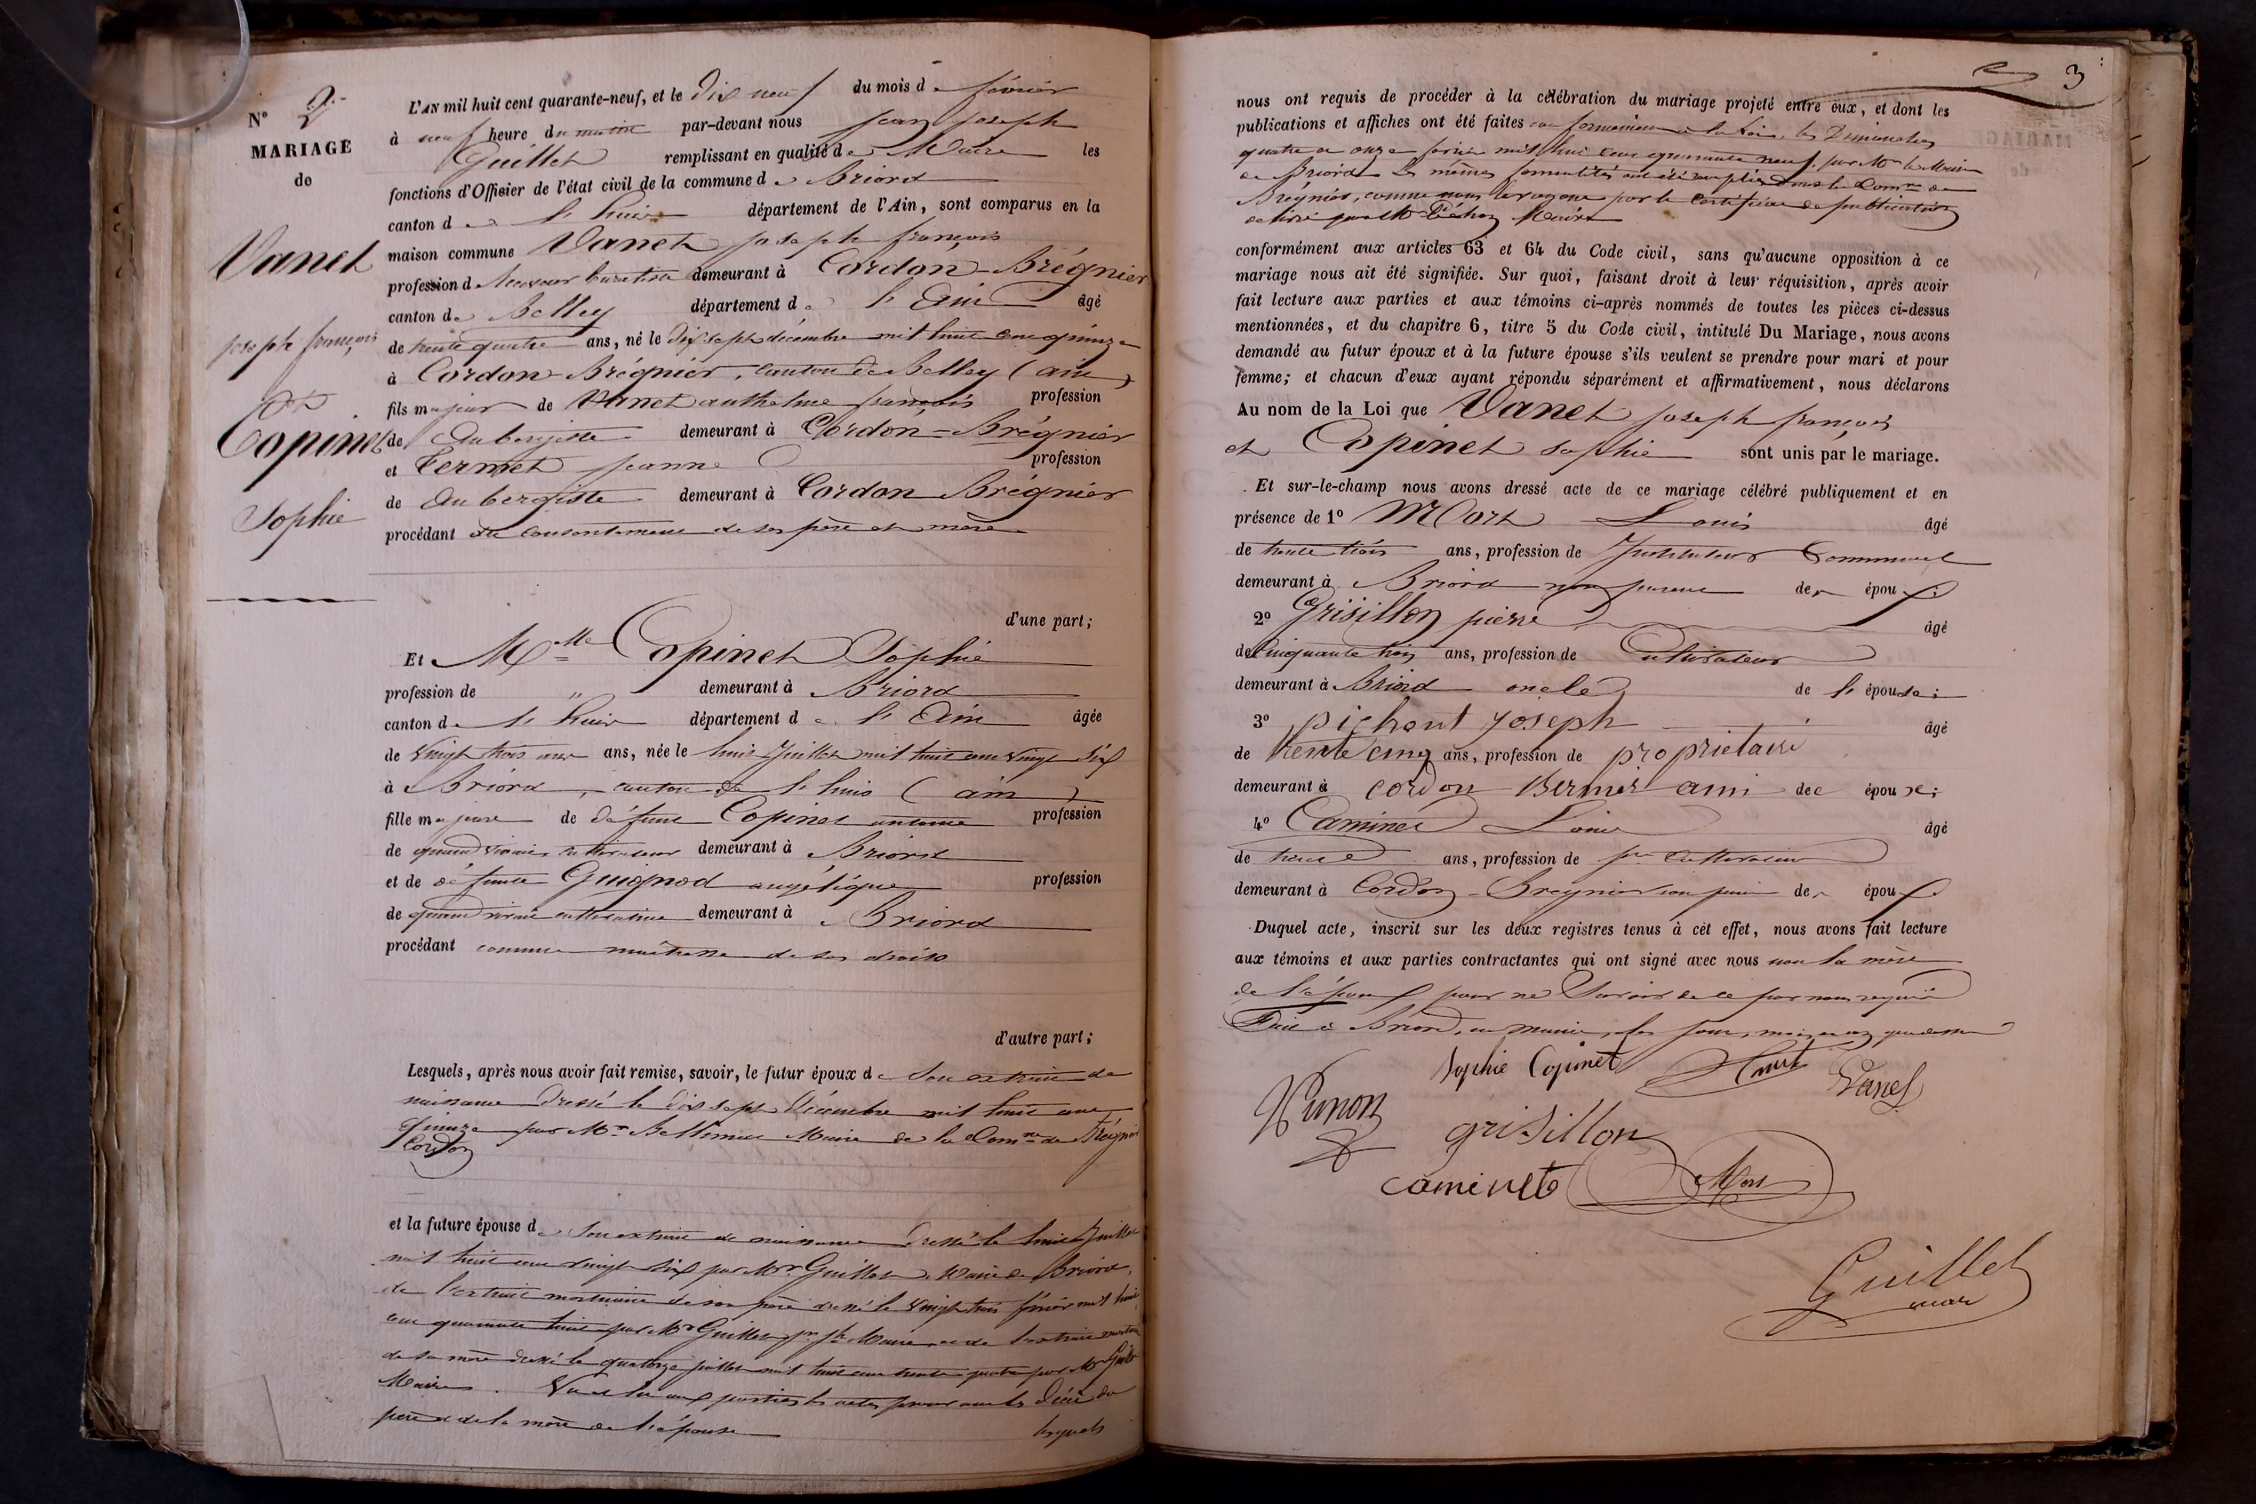 N° 2
MARIAGE
de
Vanet
joseph françois
et
Copinet
Sophie
L'AN mil huit cent quarante-neuf, et le dix neuf du mois de février
à neuf heure du matin par-devant nous jean joseph
Guillet remplissant en qualité de Maire les
fonctions d'Officier de l'état civil de la commune de Briord
canton de l'huis département de l'Ain, sont comparus en la
maison commune Vanet joseph françois
profession d demeurant à Cordon-Brégnier
canton de Belley département de l'Ain âgé
de trente quatre ans, né le dix sept décembre mil huit cent quinze
à Cordon Brégnier, canton de Belley (ain)
fils majeur de Vanet anthelme françois profession
de Aubergiste demeurant à Cordon-Brégnier
et Termet jeanne profession
de Aubergiste demeurant à Cordon Brégnier
procédant du consentement de ses père et mère
d'une part;
Et Mlle Copinet Sophie
profession de " demeurant à Briord
canton de l'huis département de l'Ain âgée
de vingt trois ans ans, née le huit juillet mil huit cent vingt six
à Briord, canton de l'huis (ain)
fille majeure de défunt Copinet antoine profession
de quand vivait cultivateur demeurant à Briord
et de défunte Guignod angélique profession
de quand vivait cultivatrice demeurant à Briord
procédant comme maîtresse de ses droits
d'autre part;
Lesquels, après nous avoir fait remise, savoir, le futur époux de son extrait de
naissance dressé le dix sept décembre mil huit cent
quinze par Mr Maire de la Comne de Brégnier
Cordon
et la future épouse de son extrait de naissance dressé le huit juillet
mil huit cent vingt six par Mr Guillet Maire de Briord,
de l'extrait mortuaire de son père dressé le vingt trois février mil huit
cent quarante huit par Mr Guillet jn jh Maire et de l'extrait mortuaire
de sa mère dressé le quatorze juillet mil huit cent trente quatre par Mr Guillet
Maire. Vu et lu aux parties les actes prouvant les décès du
père et de la mère de l'épouse lesquels
3
nous ont requis de procéder à la célébration du mariage projeté entre eux, et dont les
publications et affiches ont été faites conformément à la loi, les Dimanches
quatre et onze février mil huit cent quarante neuf, par Mr le Maire
de Briord les mêmes formalités ont été remplies dans la Comne de
Brégnier, comme nous le voyons par le certificat de publication
délivré par Mr Maire
conformément aux articles 63 et 64 du Code civil, sans qu'aucune opposition à ce
mariage nous ait été signifiée. Sur quoi, faisant droit à leur réquisition, après avoir
fait lecture aux parties et aux témoins ci-après nommés de toutes les pièces ci-dessus
mentionnées, et du chapitre 6, titre 5 du Code civil, intitulé Du Mariage, nous avons
demandé au futur époux et à la future épouse s'ils veulent se prendre pour mari et pour
femme; et chacun d'eux ayant répondu séparément et affirmativement, nous déclarons
Au nom de la Loi que Vanet joseph françois
et Copinet sophie sont unis par le mariage.
Et sur-le-champ nous avons dressé acte de ce mariage célébré publiquement et en
présence de 1° Mort Louis âgé
de trente trois ans, profession de Instituteur Communal
demeurant à Briord non parent des époux
2° Grisillon pierre âgé
de cinquante trois ans, profession de Cultivateur
demeurant à Briord oncle de l'épouse;
3° pichont joseph âgé
de trente cinq ans, profession de proprietaire
demeurant à cordon Bernier ami de époux;
4° Caminet Louis âgé
de trente ans, profession de pre Cultivateur
demeurant à Cordon-Bregnier cousin des époux
Duquel acte, inscrit sur les deux registres tenus à cet effet, nous avons fait lecture
aux témoins et aux parties contractantes qui ont signé avec nous non la mère
de l'époux pour ne savoir de ce par nous requis
Fait à Briord, en mairie, les jour, mois et an que dessus
Sophie Copinet
Vanet
grisillon
caminet
Mort
Guillet
maire